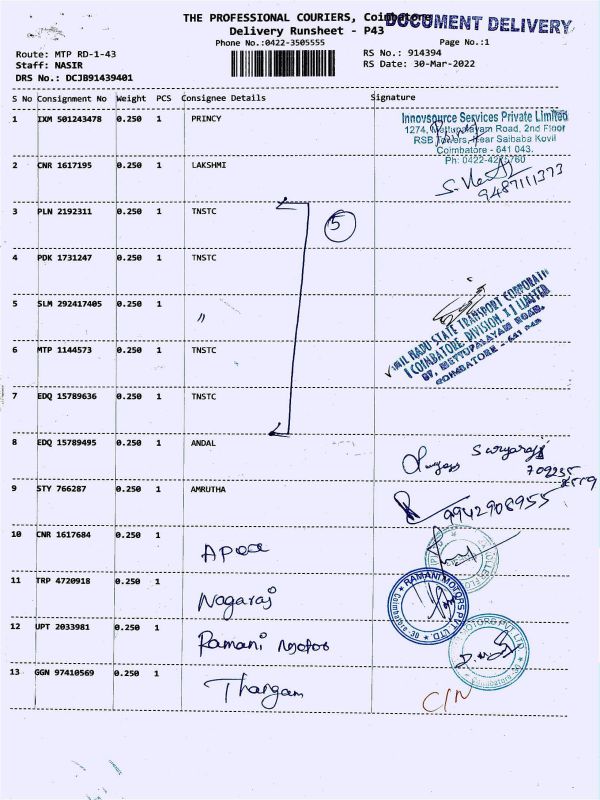 THE PROFESSIONAL COURIERS, Coimbatore
DOCUMENT DELIVERY
Delivery Runsheet - P43
Phone No.:0422-3505555
Page No.:1
Route: MTP RD-1-43
RS No.: 914394
Staff: NASIR
RS Date: 30-Mar-2022
DRS No.: DCJB91439401
S No Consignment No Weight PCS Consignee Details Signature
1 IXM 501243478 0.250 1 PRINCY
Innovsource Services Private Limited
1274, Mettupalayam Road, 2nd Floor
RSB Towers, Near Saibaba Kovil
Coimbatore - 641 043.
Ph: 0422-4275760
2 CNR 1617195 0.250 1 LAKSHMI
9487111373
3 PLN 2192311 0.250 1 TNSTC
5
4 PDK 1731247 0.250 1 TNSTC
5 SLM 292417405 0.250 1 "
TAMIL NADU STATE TRANSPORT CORPORATION
(COIMBATORE, DIVISION. I) LIMITED
37, METTUPALAYAM ROAD,
COIMBATORE - 641 043
6 MTP 1144573 0.250 1 TNSTC
7 EDQ 15789636 0.250 1 TNSTC
8 EDQ 15789495 0.250 1 ANDAL
Suryaraj
709235
9 STY 766287 0.250 1 AMRUTHA
9942908955
10 CNR 1617684 0.250 1
11 TRP 4720918 0.250 1 Nagaraj
RAMANI MOTORS PVT LTD
Coimbatore
12 UPT 2033981 0.250 1 Ramani Motors
MOTORS PVT LTD
Coimbatore
13 GGN 97410569 0.250 1 Thangam
C/N